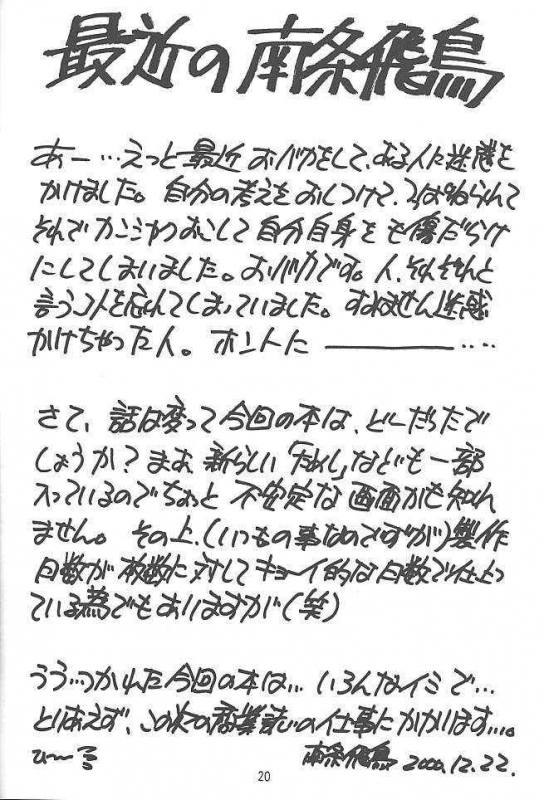 最近の南条飛鳥
あー…えっと最近おバカをして、ある人に迷惑を
かけました。自分の考えをおしつけて、つっぱねられて
それでカンシャクおこして自分自身をも傷だらけ
にしてしまいました。おバカです。人、それぞれと
言うコトを忘れてしまっていました。すいません迷惑
かけちゃった人。ホントに ――――――‥‥
さて、話は変って今回の本は、どーだったで
しょうか？まぁ、新らしい「ためし」なども一部
入っているのでちょっと不安定な画面かも知れ
ません。その上、(いつもの事なのですが)製作
日数が枚数に対してキョーイ的な日数で仕上っ
ている為でもありますが(笑)
うう…つかれた今回の本は…いろんなイミで…
とりあえず、この次の商業誌の仕事にかかります…。
ひ～る
南条飛鳥 2000.12.22.
20